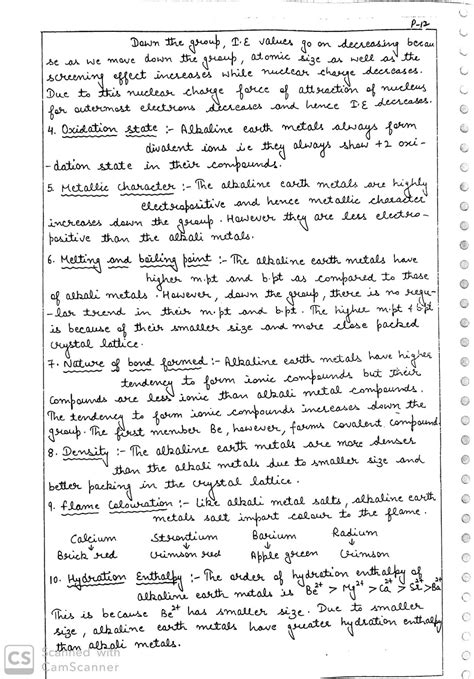 P-12
Down the group, I.E values go on decreasing becau
se as we move down the group, atomic size as well as the
screening effect increases while nuclear charge decreases.
Due to this nuclear charge force of attraction of nucleus
for outermost electrons decreases and hence I.E decreases.
4. Oxidation state :- Alkaline earth metals always form
divalent ions i.e they always show +2 oxi-
-dation state in their compounds.
5. Metallic character :- The alkaline earth metals are highly
electropositive and hence metallic character
increases down the group. However they are less electro-
positive than the alkali metals.
6. Melting and boiling point :- The alkaline earth metals have
higher m.pt and b.pt as compared to those
of alkali metals. However, down the group, there is no regu-
-lar trend in their m.pt and b.pt. The higher m.pt & b.pt
is because of their smaller size and more close packed
crystal lattice.
7. Nature of bond formed :- Alkaline earth metals have higher
tendency to form ionic compounds but their
compounds are less ionic than alkali metal compounds.
The tendency to form ionic compounds increases down the
group. The first member Be, however, forms covalent compound.
8. Density :- The alkaline earth metals are more denser
than the alkali metals due to smaller size and
better packing in the crystal lattice.
9. Flame Colouration :- Like alkali metal salts, alkaline earth
metals salt impart colour to the flame.
Calcium Strontium Barium Radium
↓ ↓ ↓ ↓
Brick red Crimson red Apple green Crimson
10. Hydration Enthalpy :- The order of hydration enthalpy of
alkaline earth metals is Be²⁺ > Mg²⁺ > Ca²⁺ > Sr²⁺ > Ba²⁺
This is because Be²⁺ has smaller size. Due to smaller
size, alkaline earth metals have greater hydration enthalpy
than alkali metals.
CS Scanned with
CamScanner